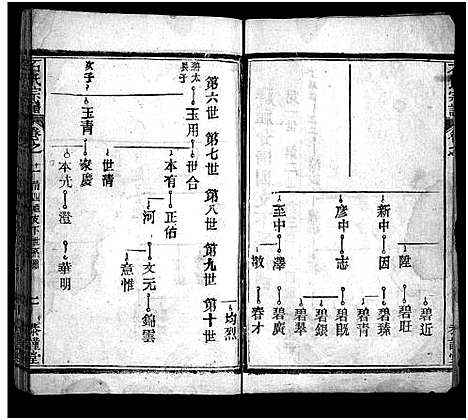 新中
彦中
至中
陞
因
志
澤
散
碧近
碧旺
碧臻
碧青
碧既
碧銀
碧翠
碧廣
春才
均烈
第六世
第七世
第八世
第九世
第十世
長子
次子
玉用
玉青
世合
本有
世清
家慶
本尤
正佑
河
澄
文元
意惟
華明
錦雲
石氏宗譜
卷之